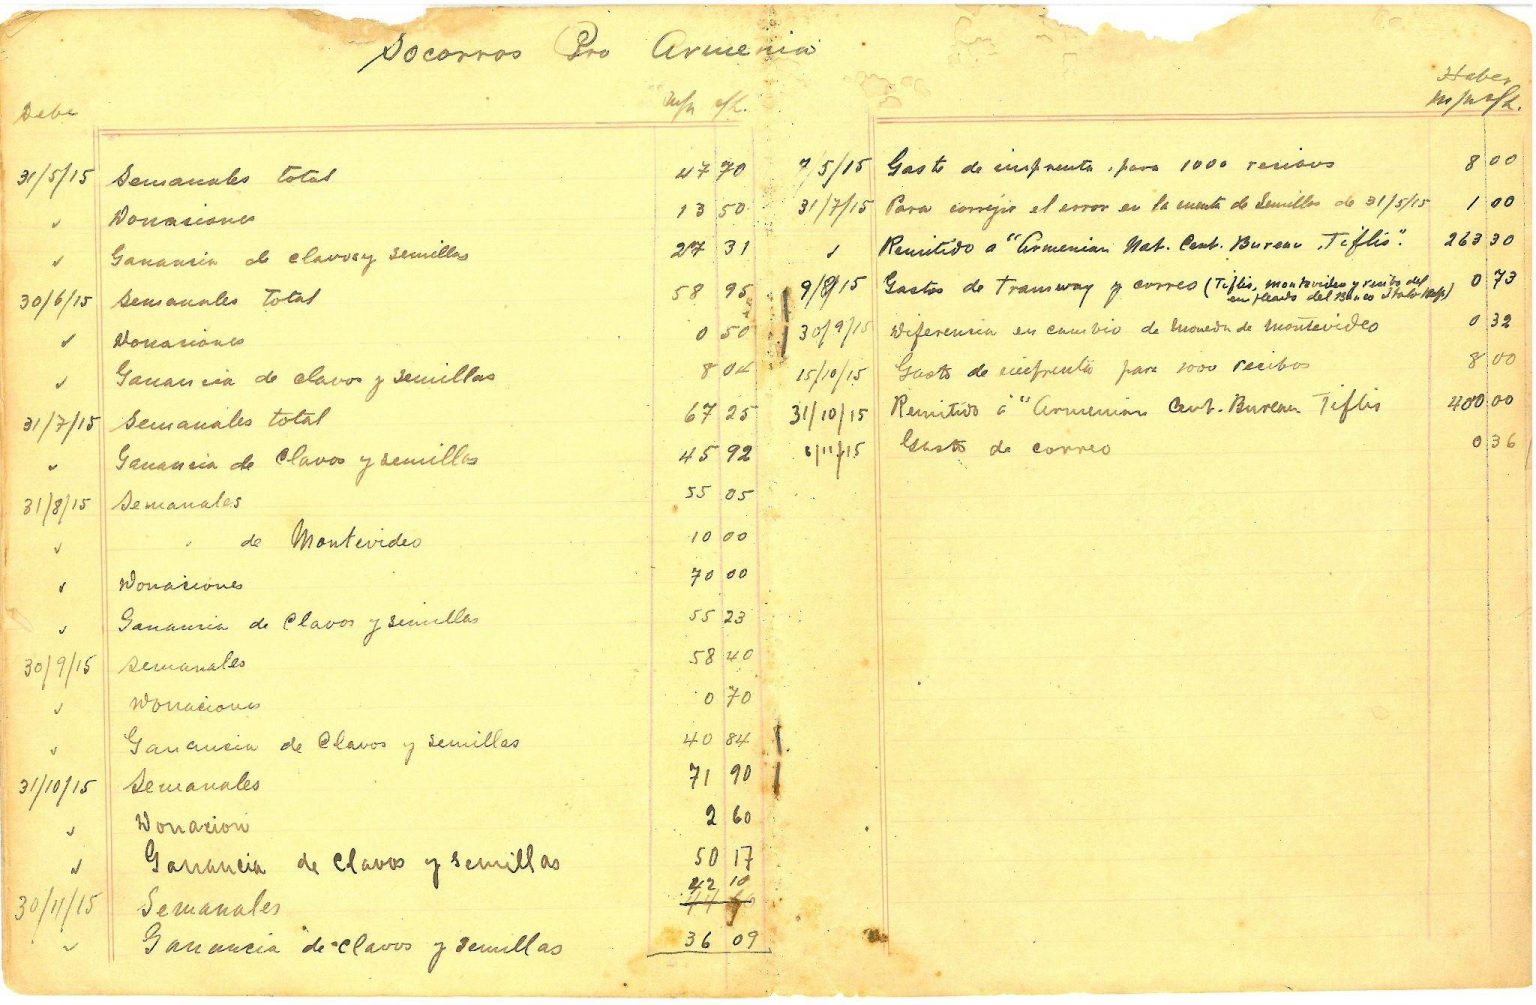 Socorros Pro Armenia
Debe m/n c/l.
31/5/15 Semanales total 47 70
" Donaciones 13 50
" Ganancia de clavos y semillas 27 31
30/6/15 Semanales total 58 95
" Donaciones 0 50
" Ganancia de clavos y semillas 8 04
31/7/15 Semanales total 67 25
" Ganancia de clavos y semillas 45 92
31/8/15 Semanales 55 05
" " de Montevideo 10 00
" Donaciones 70 00
" Ganancia de Clavos y semillas 55 23
30/9/15 Semanales 58 40
" Donaciones 0 70
" Ganancia de Clavos y semillas 40 84
31/10/15 Semanales 71 90
" Donacion 2 60
" Ganancia de clavos y semillas 50 17
30/11/15 Semanales 42 10
" Ganancia de clavos y semillas 36 09
Haber
m/n c/l.
7/5/15 Gasto de imprenta para 1000 recibos 8 00
31/7/15 Para corregir el error en la cuenta de Semillas de 31/5/15 1 00
" Remitido a "Armenian Nat. Cent. Bureau Tiflis". 263 30
9/8/15 Gastos de Tramway y correo (Tiflis, Montevideo y recibo del 0 73
empleado del Banco Italo
30/9/15 Diferencia en cambio de Moneda de Montevideo 0 32
15/10/15 Gasto de imprenta para 1000 recibos 8 00
31/10/15 Remitido á "Armenian Cent. Bureau Tiflis 400 00
/11/15 Gasto de correo 0 36